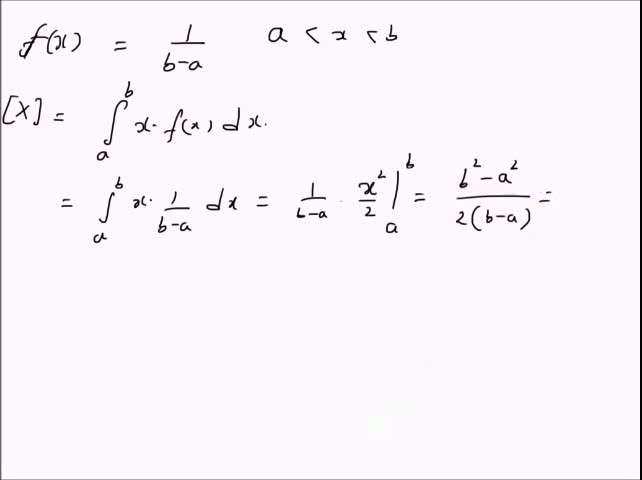 f(x) = 1/(b-a) a < x < b
[X] = ∫_a^b x · f(x) dx.
= ∫_a^b x · 1/(b-a) dx = 1/(b-a) · x²/2 |_a^b = (b² - a²)/(2(b-a)) =